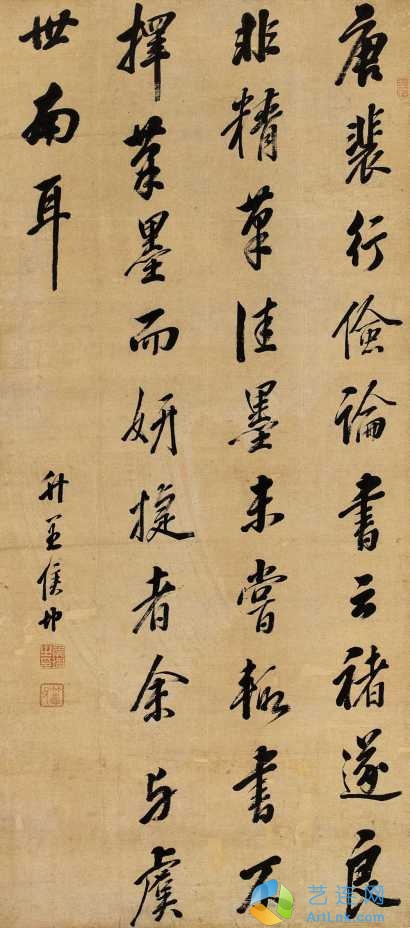 唐裴行儉論書云褚遂良
非精筆佳墨未嘗輒書不
擇筆墨而妍捷者余与虞
世南耳
侯坤
艺连网
ArtLnk.com